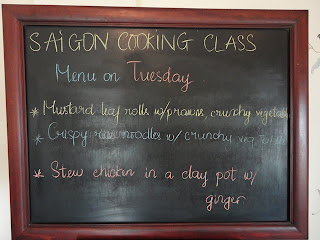 SAiGON COOKING CLASS
Menu on Tuesday
* Mustard leaf rolls w/prawns, crunchy vegetables
* Crispy rice noodles w/ crunchy vegetables
* Stew chicken in a clay pot w/
ginger